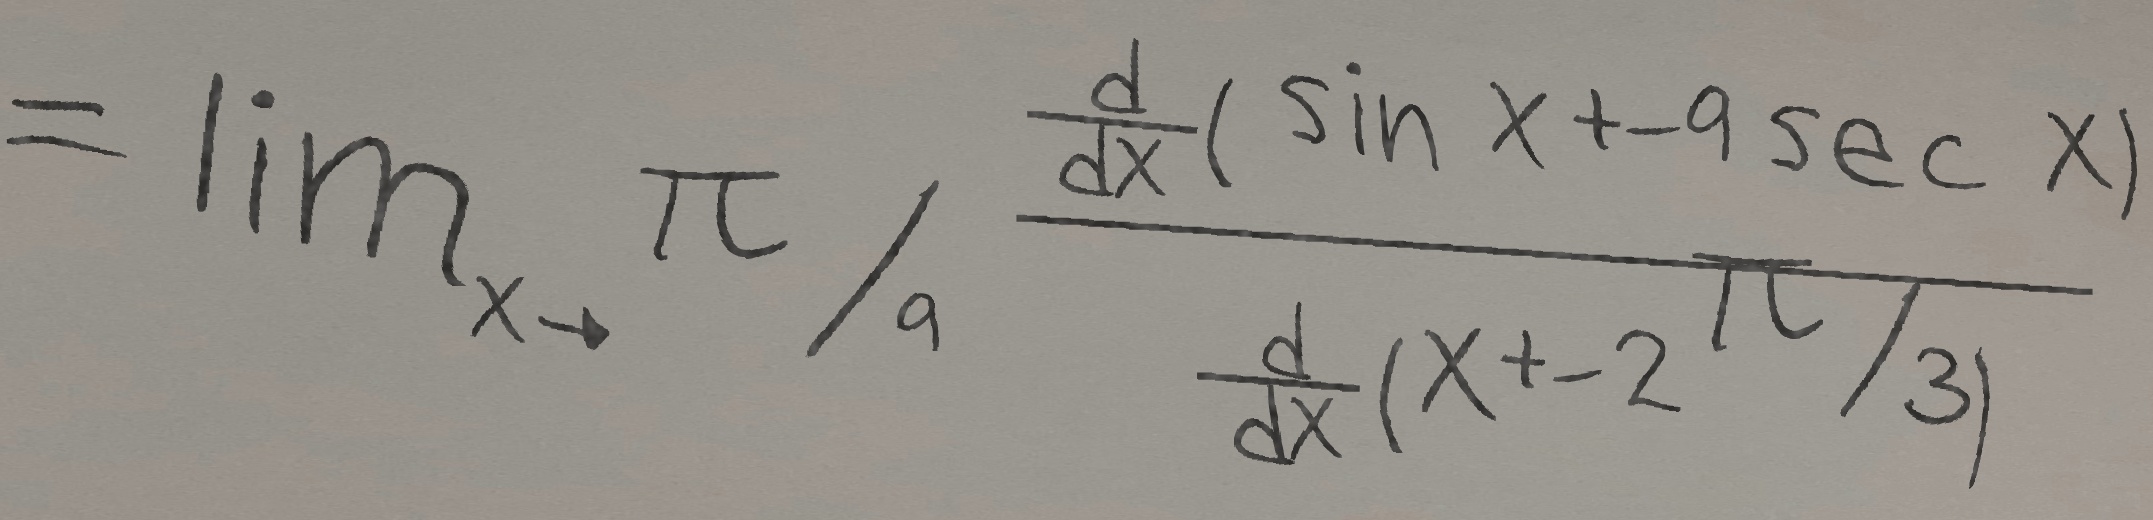 = lim_{x→π/9} \frac{\frac{d}{dx}(sin x + -9 sec x)}{\frac{d}{dx}(x + -2π/3)}